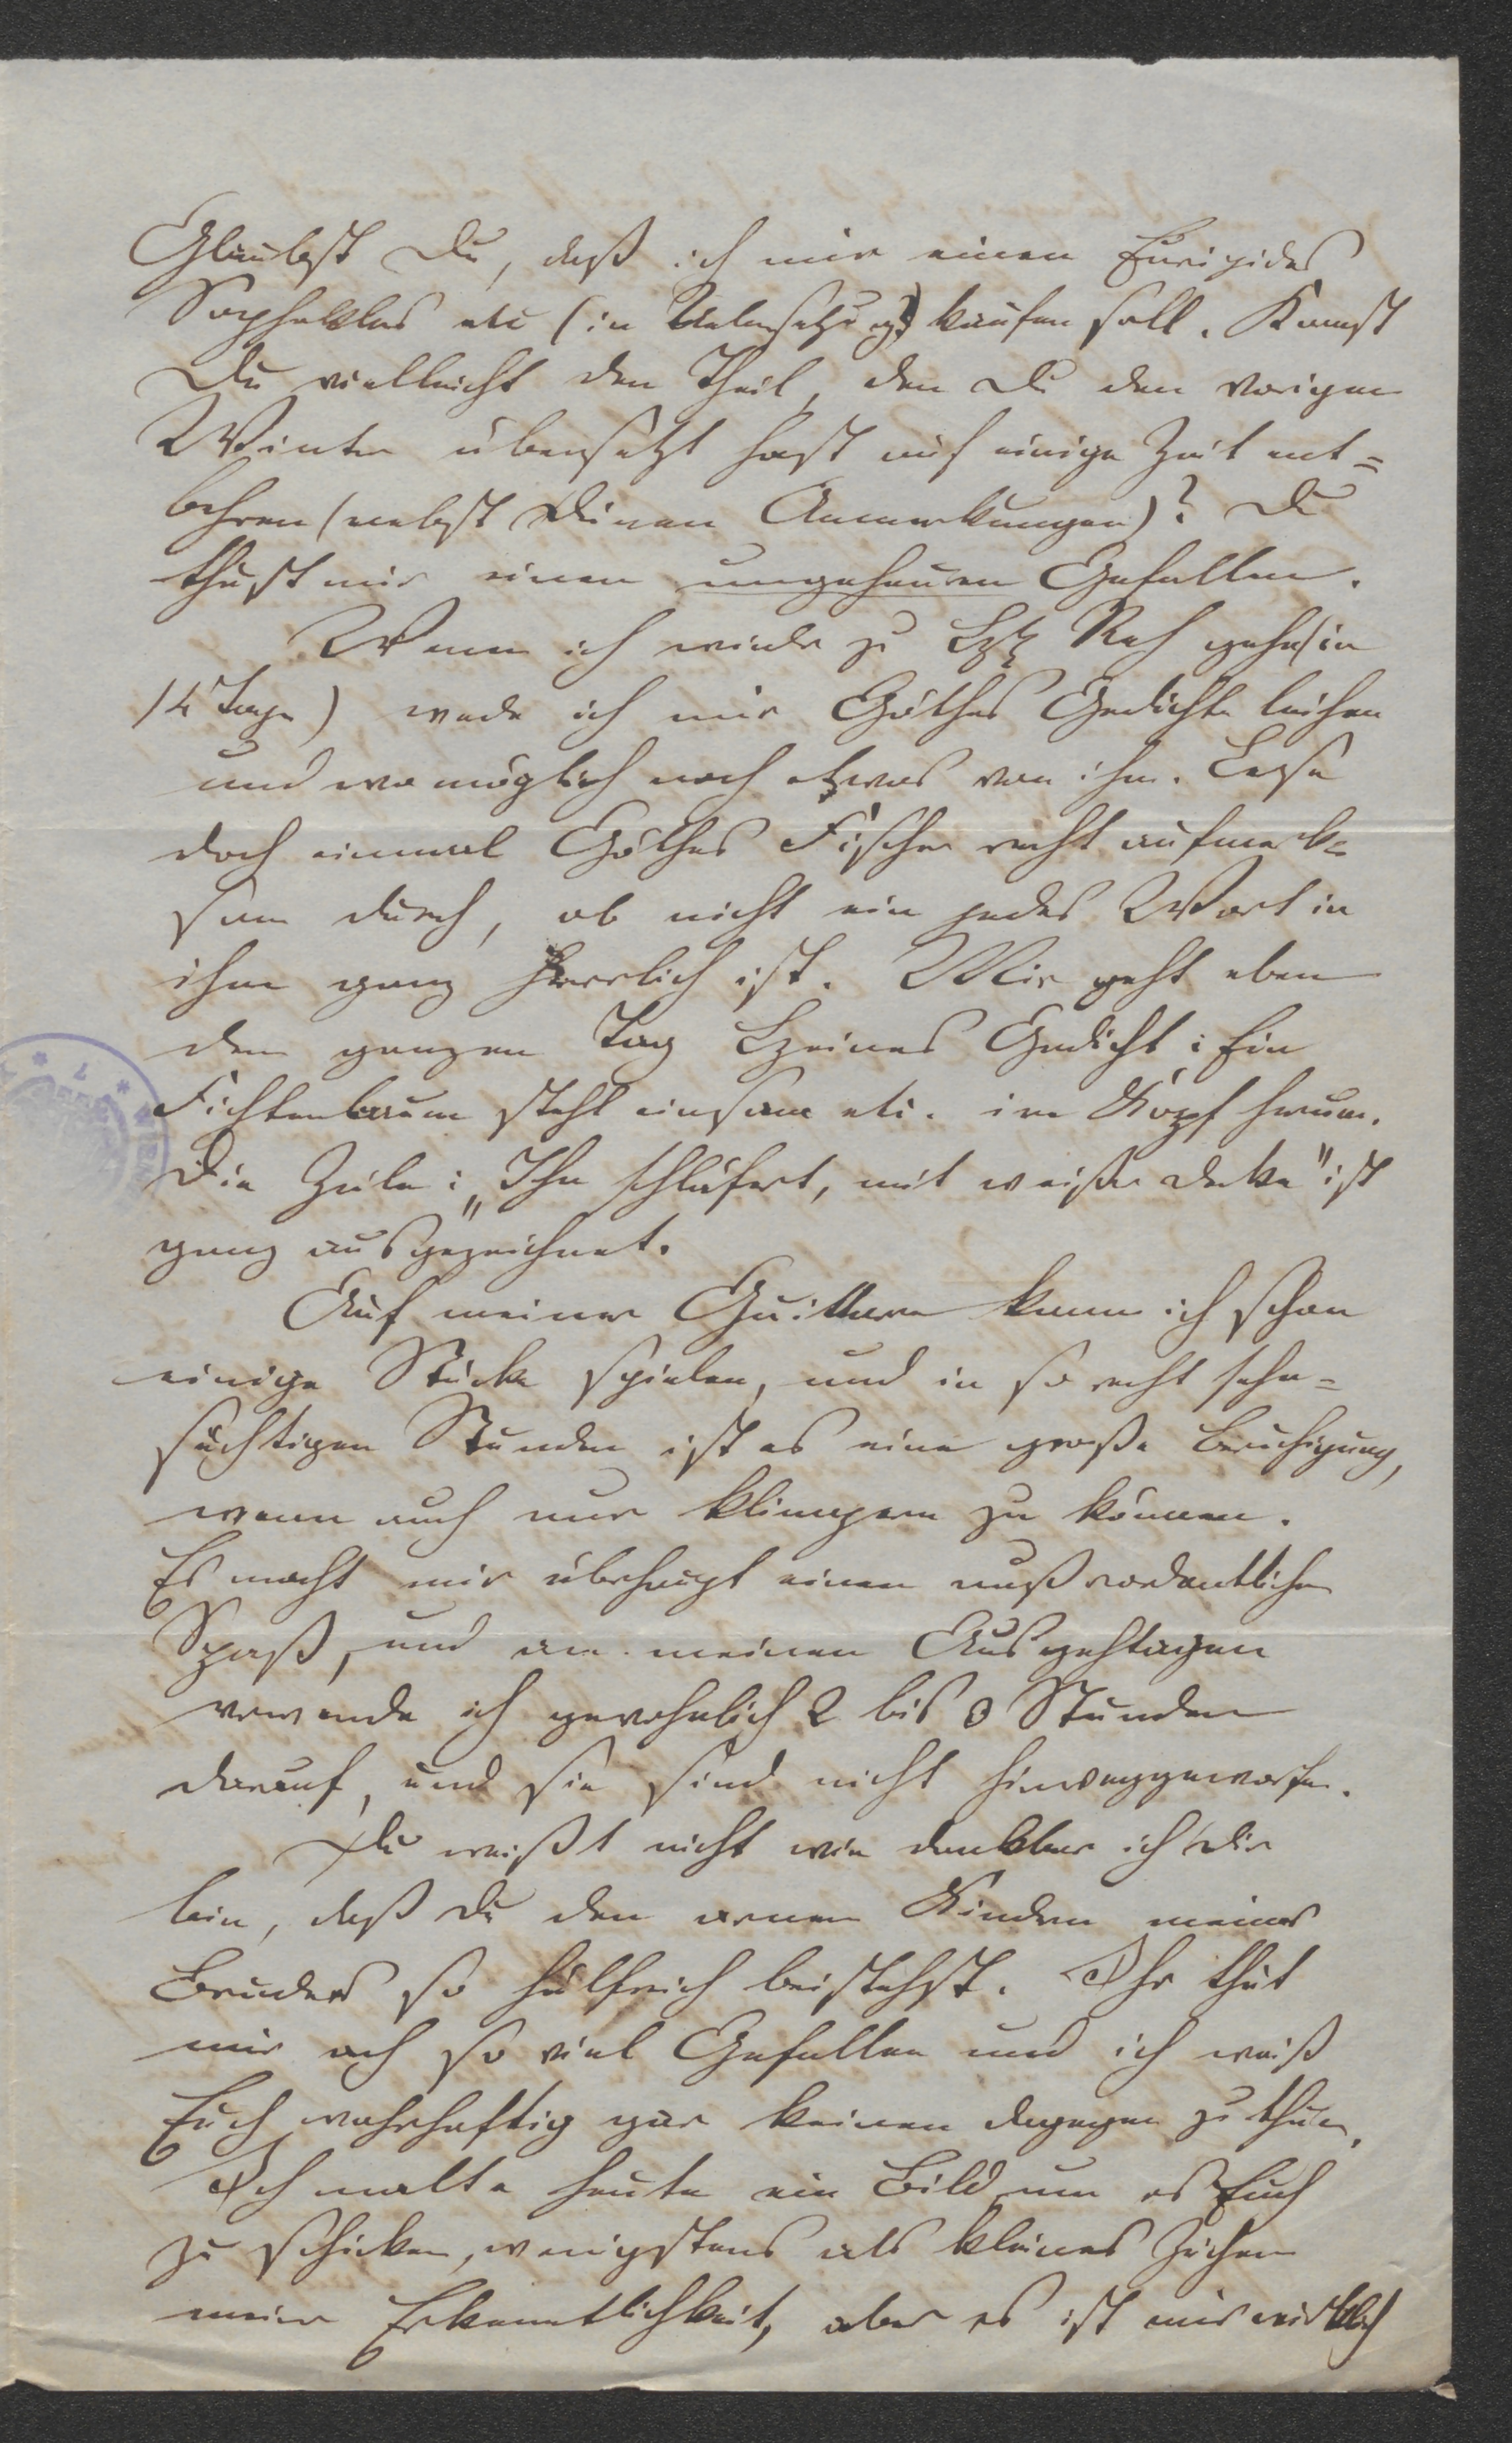 Glaubst Du, daß ich mir einen Euripides
Sophokles etc (in Uebersetzung) kaufen soll. Kannst
Du vielleicht den Theil, den Du den vorigen
Winter übersetzt hast auf einige Zeit ent=
behren (nebst Deinen Anmerkungen)? Du
thust mir einen ungeheuren Gefallen.
Wenn ich wieder zu Reh gehe (in
14 Tage) werde ich mir Göthes Gedichte leihen
und wo möglich noch etwas von ihm. Lese
doch einmal Göthes Fischer recht aufmerk=
sam durch, ob nicht ein jedes Wort in
ihm ganz herrlich ist. Mir geht eben
den ganzen Tag Heines Gedicht: Ein
Fichtenbaum steht einsam etc. im Kopf herum.
Die Zeile: „Ihn schläfert, mit weißer Decke" ist
ganz ausgezeichnet.
Auf meiner Guittarre kann ich schon
einige Stücke spielen, und in so recht sehn=
süchtigen Stunden ist es eine große Beruhigung,
wenn auch nur klimpern zu können.
Es macht mir überhaupt einen außerordentlichen
Spaß, und an meinen Ausgehtagen
verwende ich gewöhnlich 2 bis 3 Stunden
darauf, und sie sind nicht hinweggeworfen.
Du weißt nicht wie dankbar ich Dir
bin, daß Du den armen Kindern meines
Bruders so hülfreich beistehst. Ihr thut
mir ach so viel Gefallen und ich weiß
Euch wahrhaftig gar keinen dagegen zu thun.
Ich malte heute ein Bild um es Euch
zu schicken, wenigstens als kleines Zeichen
meiner Erkenntlichkeit, aber es ist mir wirklich